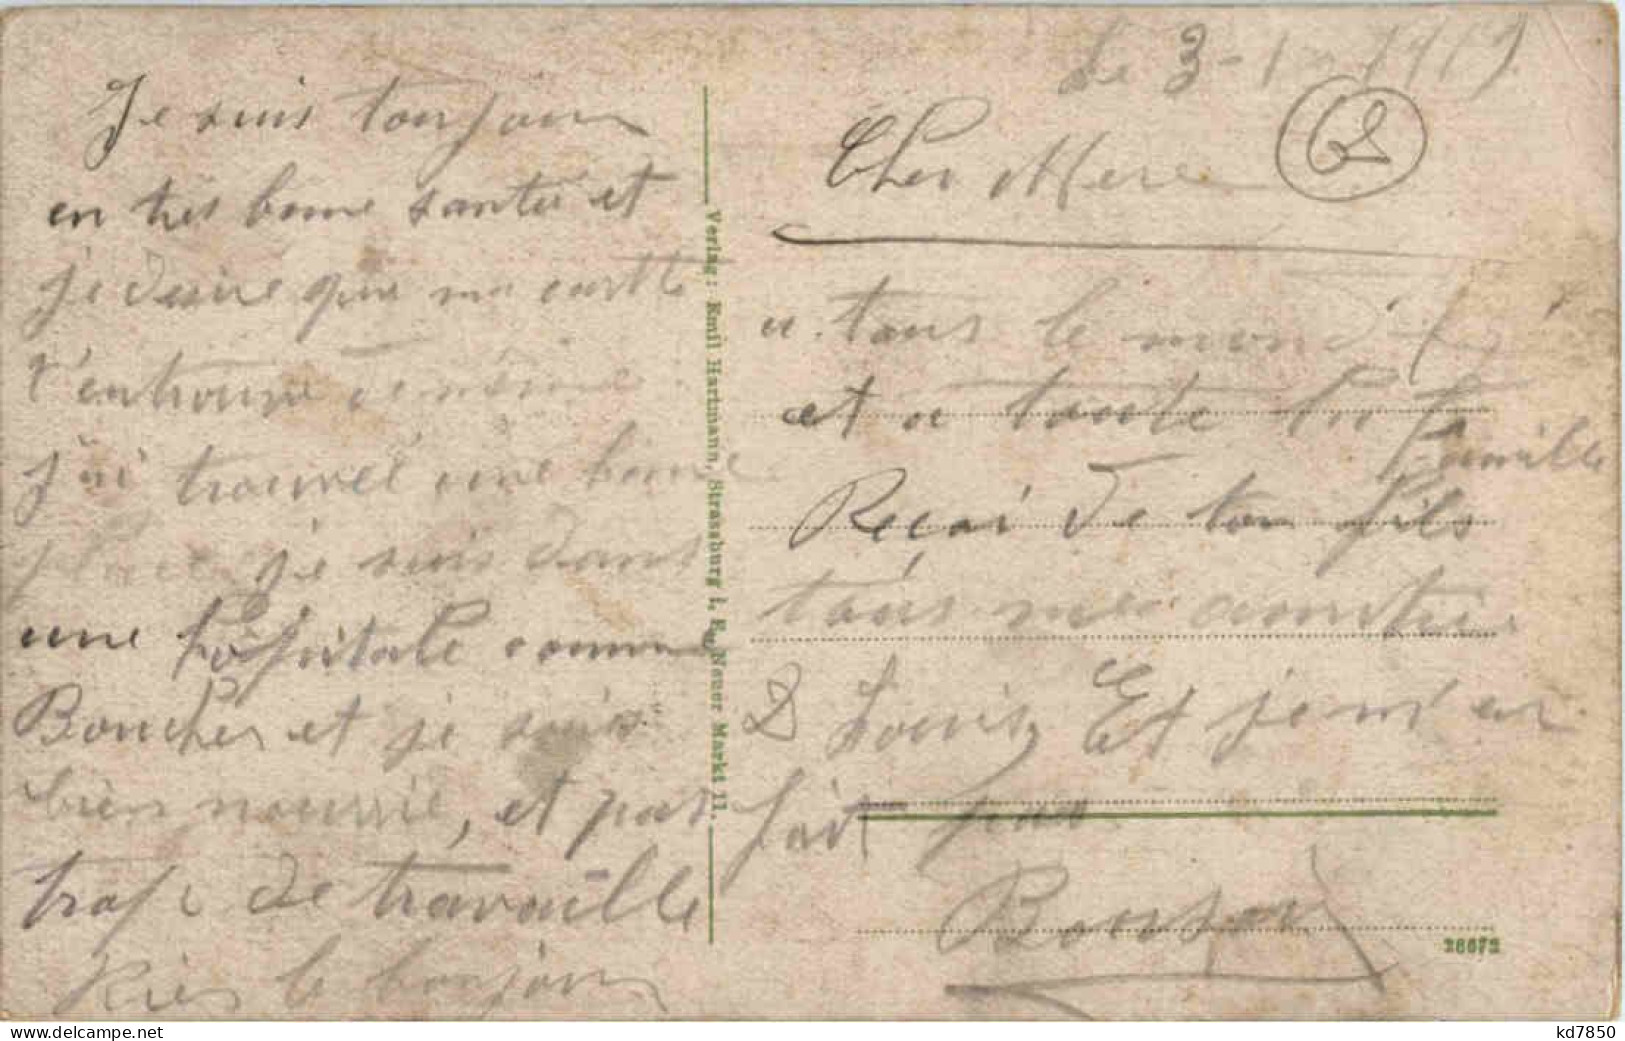 Le 3-1-1919
Cher Mere
62
Je suis toujour
en tres bonne santee et
je desire que ma cartte
t'entrouve de même
j'ai trouvé une bonne
place je suis dans
une hôpitale comme
Boucher et je suis
bien nourrie, et pas
trop de travaille
Rien le bonjour
a tous le monde
et a toute la famille
Reçoi de ton fils
tous me amitie
D Louis, Et je m'en
fait pas
Verlag: Emil Hartmann, Strassburg i. E., Neuer Markt 11.
kd7850